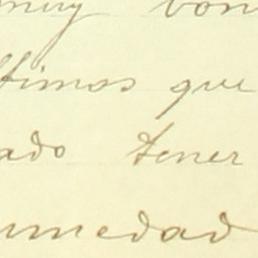 muy bon
ltimos que
ado tener
umedad